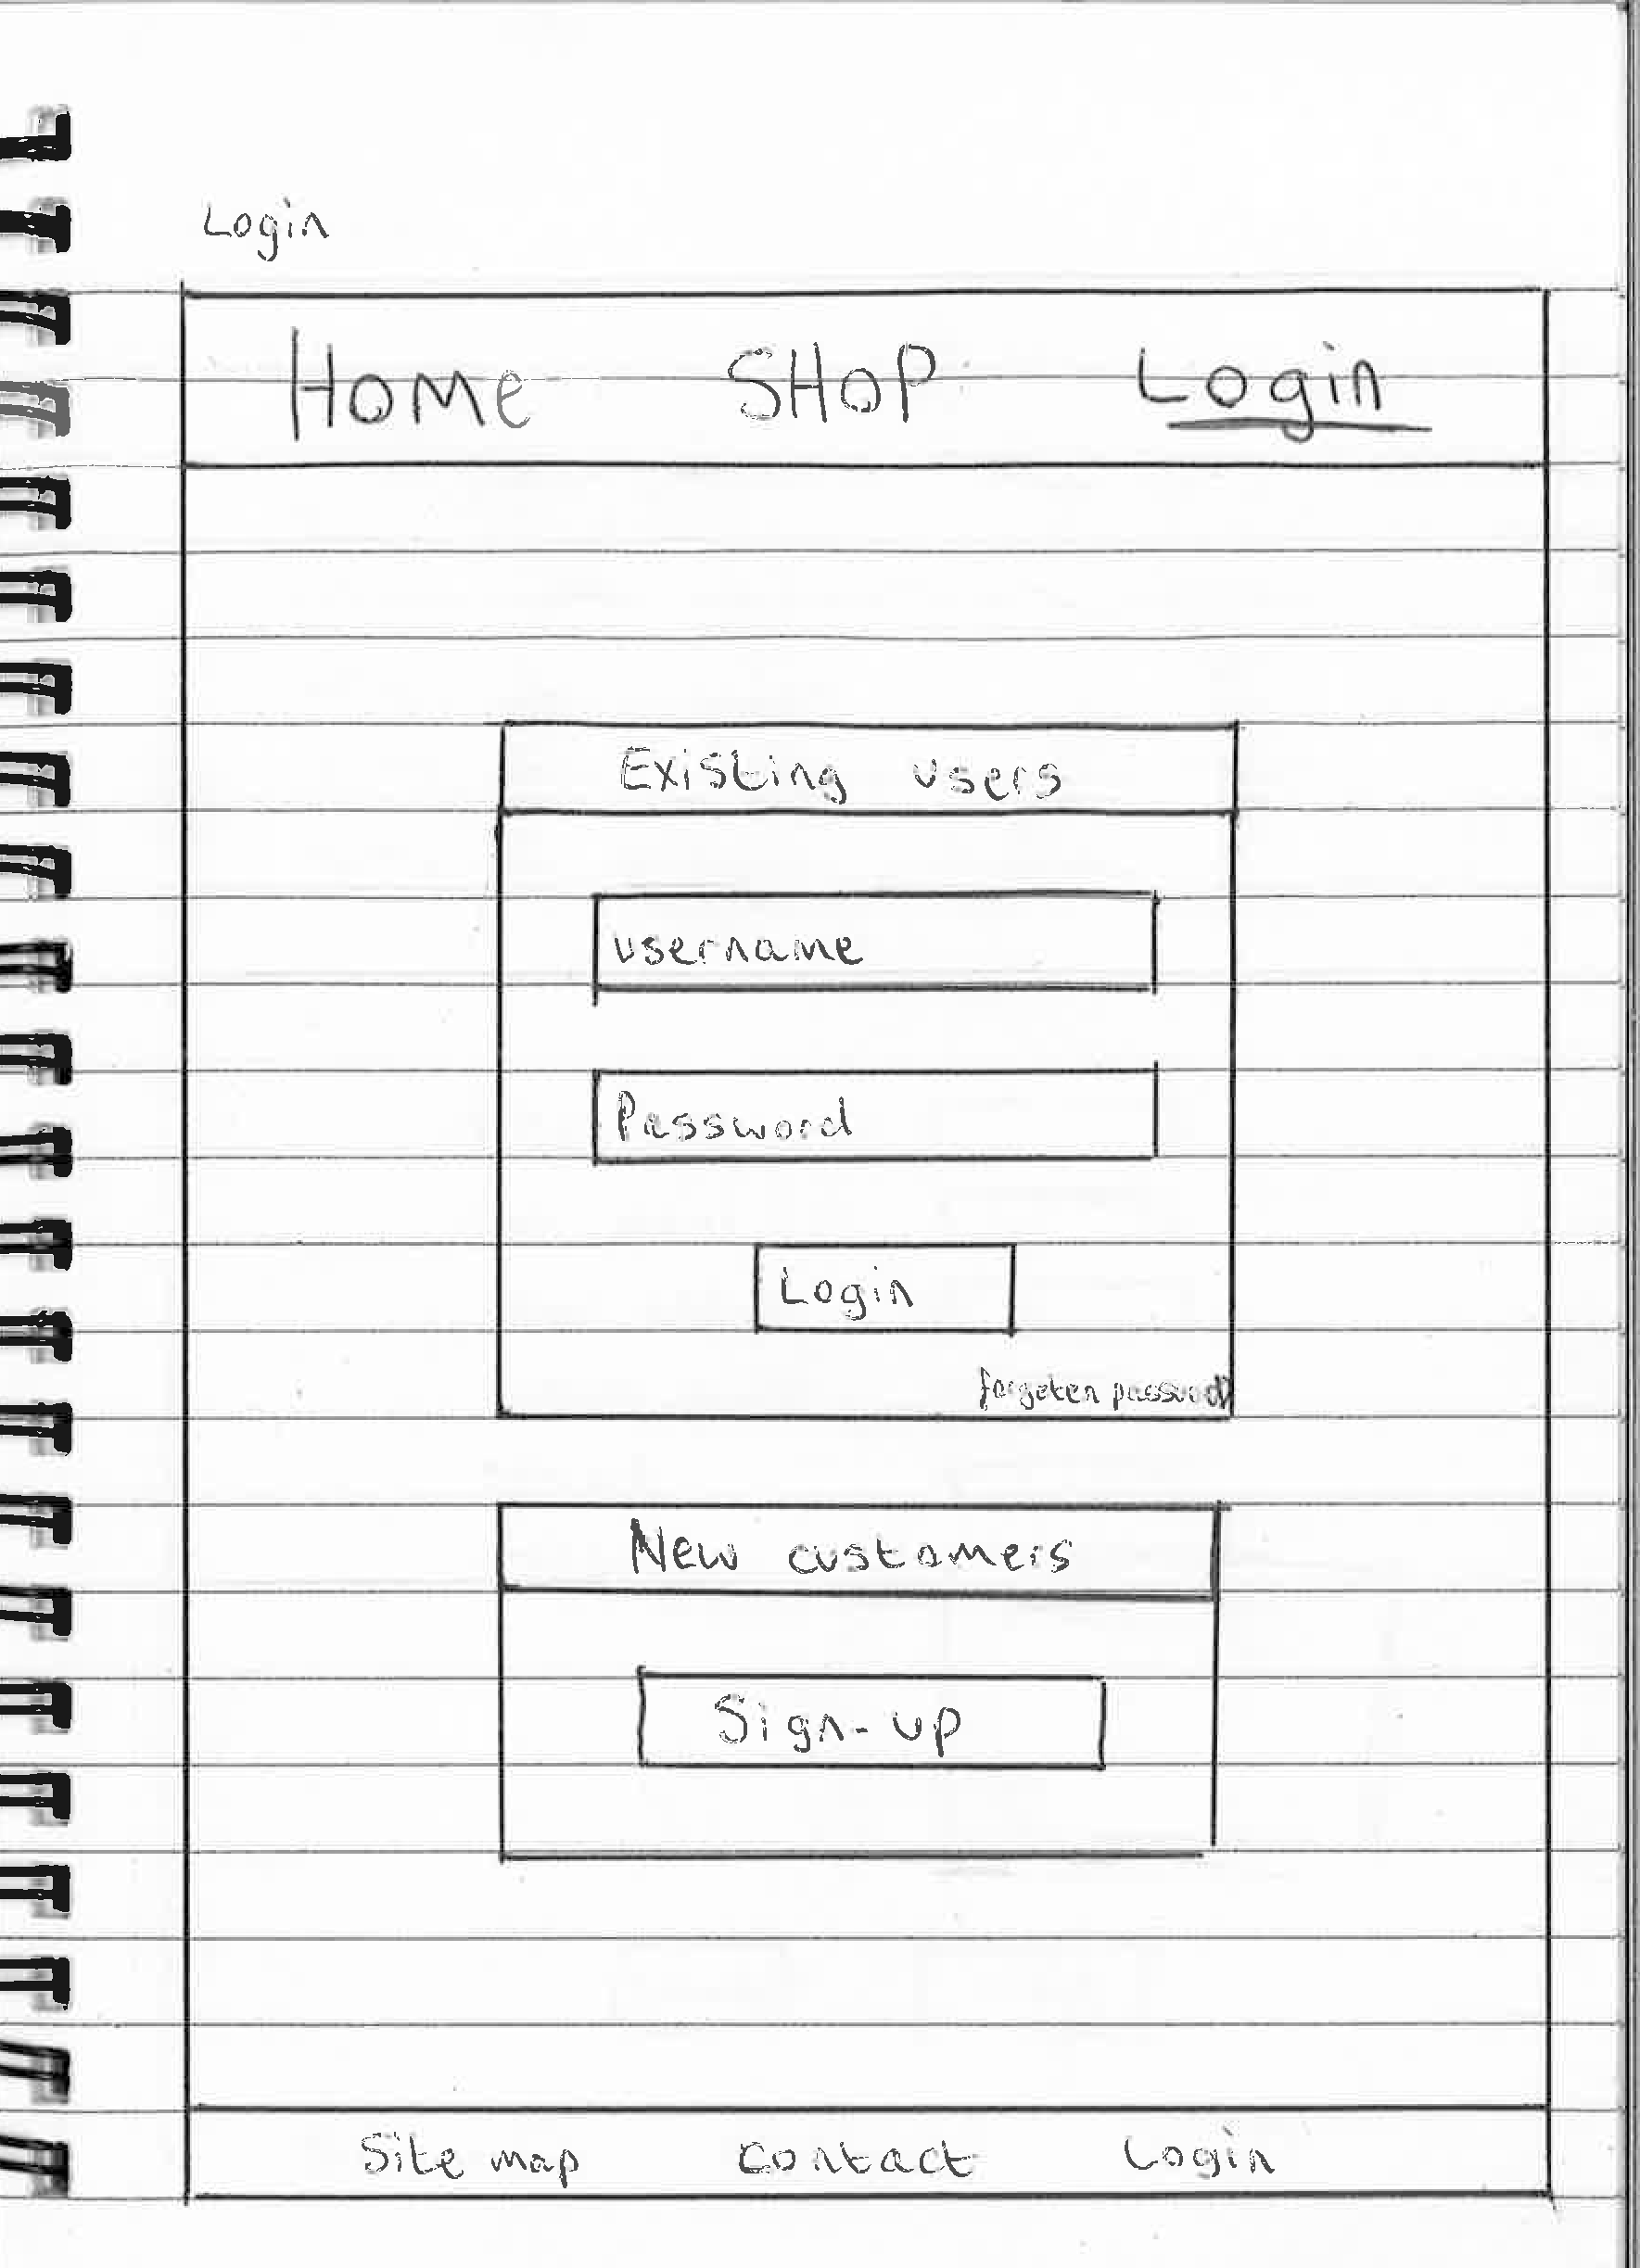 Login
HOMe SHOP Login
Existing users
username
Password
Login
forgoten password
New customers
Sign-up
Site map contact Login